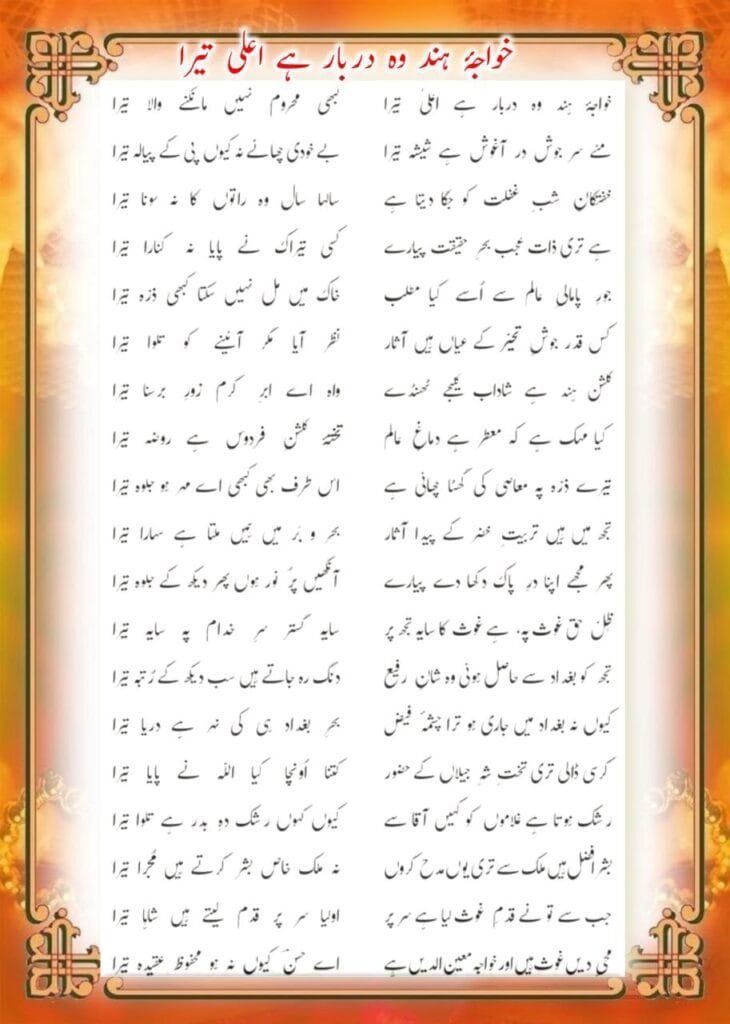 خواجۂ ہند وہ دربار ہے اعلیٰ تیرا
خواجۂ ہند وہ دربار ہے اعلیٰ تیرا کبھی محروم نہیں مانگنے والا تیرا
مئے سر جوش در آغوش ہے شیشہ تیرا بے خودی چھائے نہ کیوں پی کے پیالہ تیرا
خفتگانِ شبِ غفلت کو جگا دیتا ہے سالہا سال وہ راتوں کا نہ سونا تیرا
ہے تری ذات عجب بحرِ حقیقت پیارے کسی تیراک نے پایا نہ کنارا تیرا
جورِ پامالیِ عالم سے اُسے کیا مطلب خاک میں مل نہیں سکتا کبھی ذرّہ تیرا
کس قدر جوشِ تحیّر کے عیاں ہیں آثار نظر آیا مگر آئینے کو تلوا تیرا
گلشن ہند ہے شاداب کلیجے ٹھنڈے واہ اے ابرِ کرم زورِ برسنا تیرا
کیا مہک ہے کہ معطر ہے دماغِ عالم تختۂ گلشن فردوس ہے روضہ تیرا
تیرے ذرّہ پہ معاصی کی گھٹا چھائی ہے اس طرف بھی کبھی اے مہر ہو جلوہ تیرا
تجھ میں ہیں تربیتِ خضر کے پیدا آثار بحر و بَر میں ہمیں ملتا ہے سہارا تیرا
پھر مجھے اپنا درِ پاک دکھا دے پیارے آنکھیں پُر نور ہوں پھر دیکھ کے جلوہ تیرا
ظِلّ حق غوث پہ، ہے غوث کا سایہ تجھ پر سایہ گستر سرِ خدام پہ سایہ تیرا
تجھ کو بغداد سے حاصل ہوئی وہ شانِ رفیع دنگ رہ جاتے ہیں سب دیکھ کے رُتبہ تیرا
کیوں نہ بغداد میں جاری ہو ترا چشمۂ فیض بحرِ بغداد ہی کی نہر ہے دریا تیرا
کرسی ڈالی تری تختِ شہِ جیلاں کے حضور کتنا اُونچا کیا اللہ نے پایا تیرا
رشک ہوتا ہے غلاموں کو کہیں آقا سے کیوں کہوں رشک دہِ بدر ہے تلوا تیرا
بشر افضل ہیں ملک سے تری یوں مدح کروں نہ ملک خاص بشر کرتے ہیں مُجرا تیرا
جب سے تو نے قدمِ غوث لیا ہے سر پر اولیا سر پر قدم لیتے ہیں شاہا تیرا
محی دیں غوث ہیں اور خواجہ معین الدیں ہے اے حسنؔ کیوں نہ ہو محفوظ عقیدہ تیرا